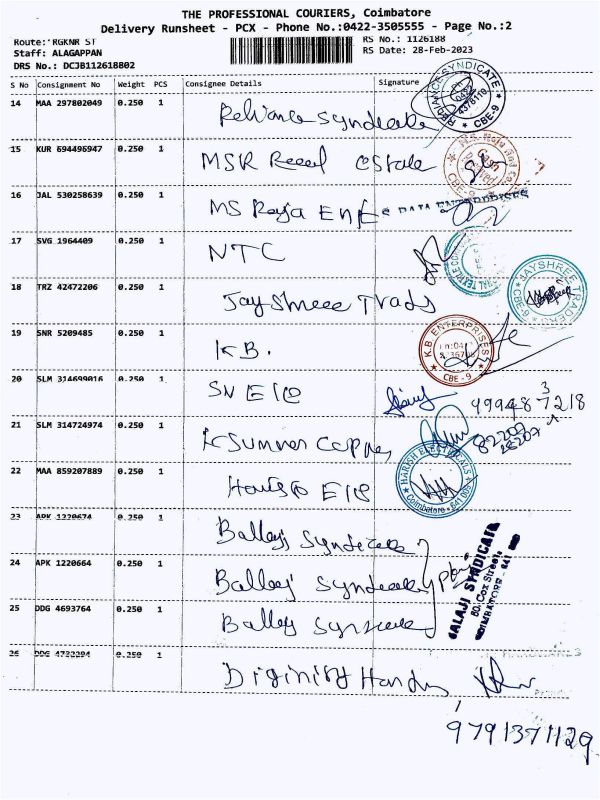 THE PROFESSIONAL COURIERS, Coimbatore
Delivery Runsheet - PCX - Phone No.:0422-3505555 - Page No.:2
Route: RGKNR ST
RS No.: 1126188
Staff: ALAGAPPAN
RS Date: 28-Feb-2023
DRS No.: DCJB112618802
S No Consignment No Weight PCS Consignee Details Signature
14 MAA 297802049 0.250 1 Reliance Syndicate
RELIANCE SYNDICATE CBE-9
15 KUR 694496947 0.250 1 MSR Reeel Estate
CBE-9
16 JAL 530258639 0.250 1 MS Raja Ent
17 SVG 1964409 0.250 1 NTC
18 TRZ 42472206 0.250 1 Jay Shree Trads
JAYSHREE TRADERS CBE-9
19 SNR 5209485 0.250 1 K.B.
K.B. ENTERPRISES CBE-9
20 SLM 314699016 0.250 1 SN Ele
21 SLM 314724974 0.250 1 Summer Copper
82207
22 MAA 859207889 0.250 1 Ele
HARISH ELECTRICALS Coimbatore - 641 009
23 APK 1220674 0.250 1 Ballaji Syndicate
24 APK 1220664 0.250 1 Ballaji Syndicate
25 DDG 4693764 0.250 1 Ballaji Syndicate
BALAJI SYNDICATE
60, Cox Street
COIMBATORE - 641
26 DDG 4722294 0.250 1 Diginity Hardw
9791371129